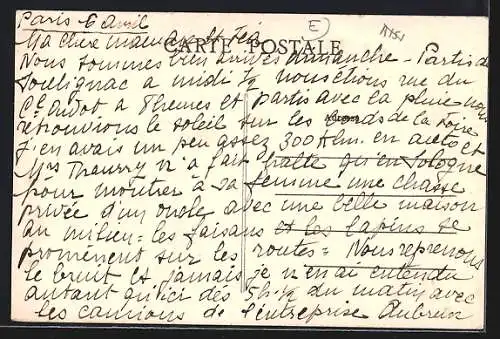 Paris 6 avril
E
A1151
CARTE POSTALE
Ma chère maman et
Nous sommes bien arrivés dimanche - Partis de
Soulignac a midi ½ nous étions rue du
a Themes et partis avec la pluie nous
retrouvions le soleil sur les bords de la Loire
J'en avais un peu assez 300 Km. en auto et
Mrs Thaurry n'a fait halte qu'en Sologne
pour montrer a sa femme une chasse
privée d'un oncle avec une belle maison
au milieu = les faisans et les lapins se
promenent sur les routes = Nous reprenons
le bruit et jamais je n'en ai entendu
autant qu'ici dès 5h ½ du matin avec
les camions de l'entreprise